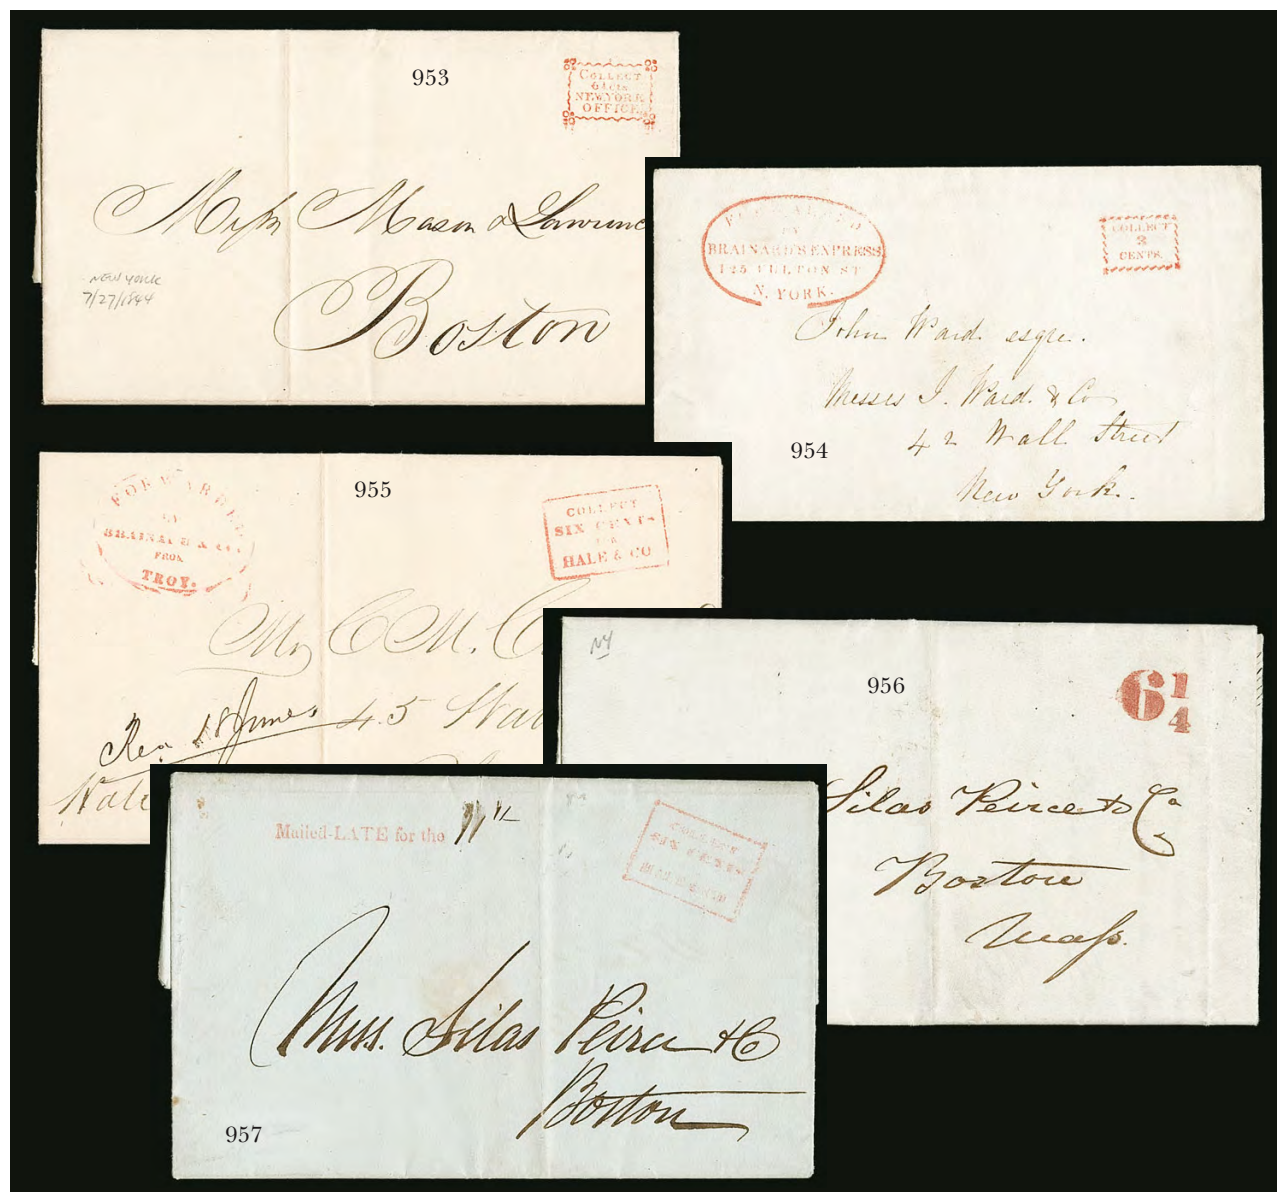 953
COLLECT
6¼ Cts
NEW YORK
OFFICE
Mess Mason & Lawrenc
Boston
NEW YORK
7/27/1844
FORWARDED
BY
BRAINARD'S EXPRESS
125 FULTON ST
N. YORK.
COLLECT
2
CENTS.
John Ward esqre.
Messrs J. Ward & Co
42 Wall Street
New York.
954
955
FORWARDED
BY
BRAINARD & Co.
FROM
TROY.
COLLECT
SIX CENTS
FOR
HALE & CO
Mr C M. C
Rec 18 June
45 Wa
Wate
NY
956
6 1/4
Silas Peirce & Co
Boston
Mass.
Mailed-LATE for the 11th
COLLECT
SIX CENTS
FOR
HALE & CO
Mess. Silas Peirce & Co
Boston
957